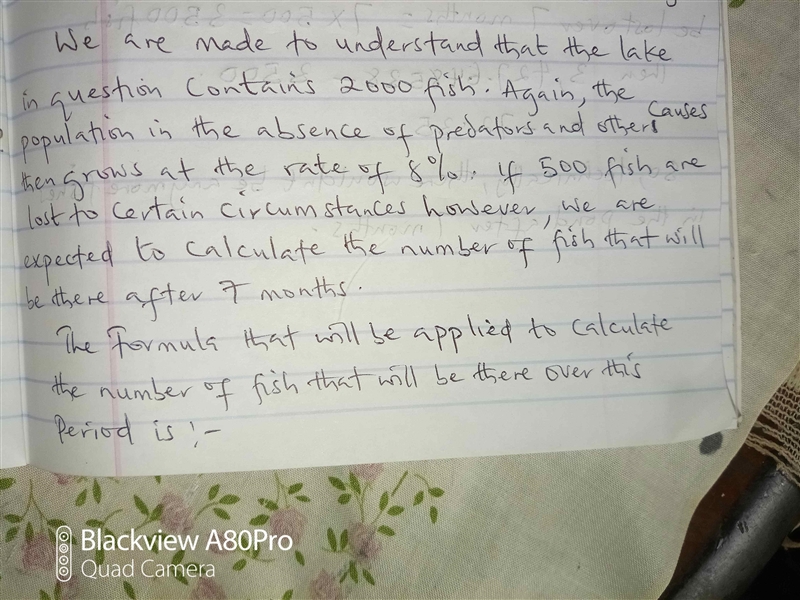 We are made to understand that the lake
in question contains 2000 fish. Again, the
population in the absence of predators and others causes
then grows at the rate of 8%. if 500 fish are
lost to certain circumstances however, we are
expected to calculate the number of fish that will
be there after 7 months.
The formula that will be applied to calculate
the number of fish that will be there over this
Period is :-
Blackview A80Pro
Quad Camera